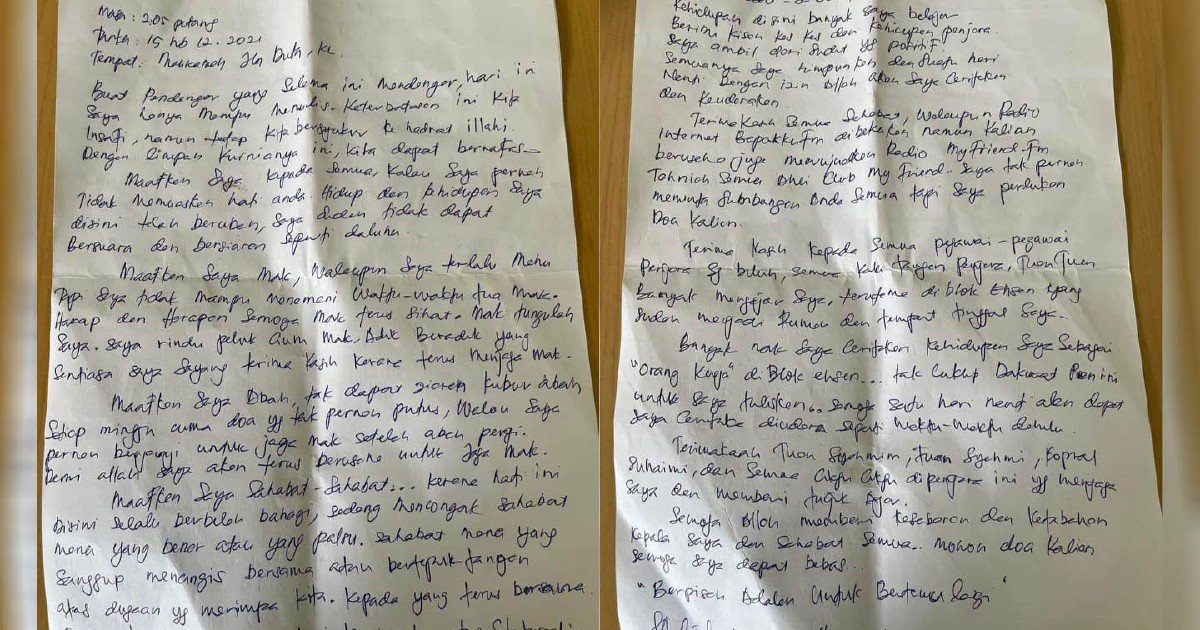 Masa : 2.05 petang
Tarikh : 15 Feb 12. 2021
Tempat : Mahkamah Jln Duta, KL.
Buat Pendengar yang Selama ini mendengar, hari ini
Saya hanya mampu menulis. Keterbatasan ini kita
Insafi, namun tetap kita bersyukur ke hadrat illahi.
Dengan limpah kurnianya ini, kita dapat bernafas
Maafkan Saya kepada semua, kalau Saya pernah
Tidak memuaskan hati anda. Hidup dan kehidupan Saya
disini telah berubah, saya dudah tidak dapat
Bersuara dan bersiaran seperti dahulu.
Maafkan Saya Mak, Walaupun Saya terlalu Mahu
Tapi Saya tidak mampu menemani Waktu-waktu tua Mak.
Harap dan Harapan Semoga Mak terus Sihat. Mak tunggulah
Saya. Saya rindu peluk Cium Mak. Adik Beradik yang
Sentiasa Saya Sayang terima kasih kerana terus menjaga Mak.
Maafkan Saya Abah, tak dapat ziarah kubur Abah
Setiap minggu cuma doa yg tak pernah putus, Walau Saya
pernah berjanji untuk jaga Mak setelah abah pergi.
Demi allah saya akan terus berusaha untuk jaga Mak.
Maafkan Saya Sahabat-Sahabat... kerana hati ini
Disini Selalu berbelah bahagi, sedang mencongak sahabat
mana yang benar atau yang palsu. Sahabat mana yang
Sanggup menangis bersama atau bertepuk tangan
atas dugaan yg menimpa kita. Kepada yang terus bersama
Kehidupan disini banyak saya belajar
Berita kisah kes kes dan kehidupan penjara.
Saya ambil dari sudut yg positif
Semuanya Saya himpunkan dan suatu hari
Nanti Dengan izin Allah akan Saya Ceritakan
dan Keudarakan.
Terima kasih Semua Sahabat, Walaupun Radio
Internet Bapakku Fm dibekukan namun Kalian
berusaha juga mewujudkan Radio MyFriend.Fm
Tahniah Semua Dhei Curb My Friend. Saya tak pernah
meminta Sumbangan Anda Semua tapi Saya perlukan
Doa Kalian.
Terima kasih kepada Semua pegawai-pegawai
Penjara Sg buluh, semua kaki tangan Penjara, Tuan Tuan
Banyak mengajar Saya, terutama di blok Ehsan yang
Sudah menjadi Rumah dan tempat tinggal Saya.
Banyak nak Saya Ceritakan Kehidupan Saya Sebagai
"Orang Kerja" di Blok ehsan... tak Cukup Dakwat Pen ini
untuk Saya tuliskan.. Semoga satu hari nanti akan dapat
Saya Cerita ke diudara seperti waktu-waktu dahulu.
Terimakasih Tuan Syahmim, Tuan Syahmi, Kopral
Suhaimi, dan Semua Cikgu Cikgu dipenjara ini yg menjaga
Saya dan memberi tunjuk Ajar.
Semoga Allah memberi kesabaran dan Ketabahan
Kepada Saya dan Sahabat Semua.. mohon doa Kalian
semoga Saya dapat bebas...
"Berpisah Adalah Untuk Bertemu lagi"